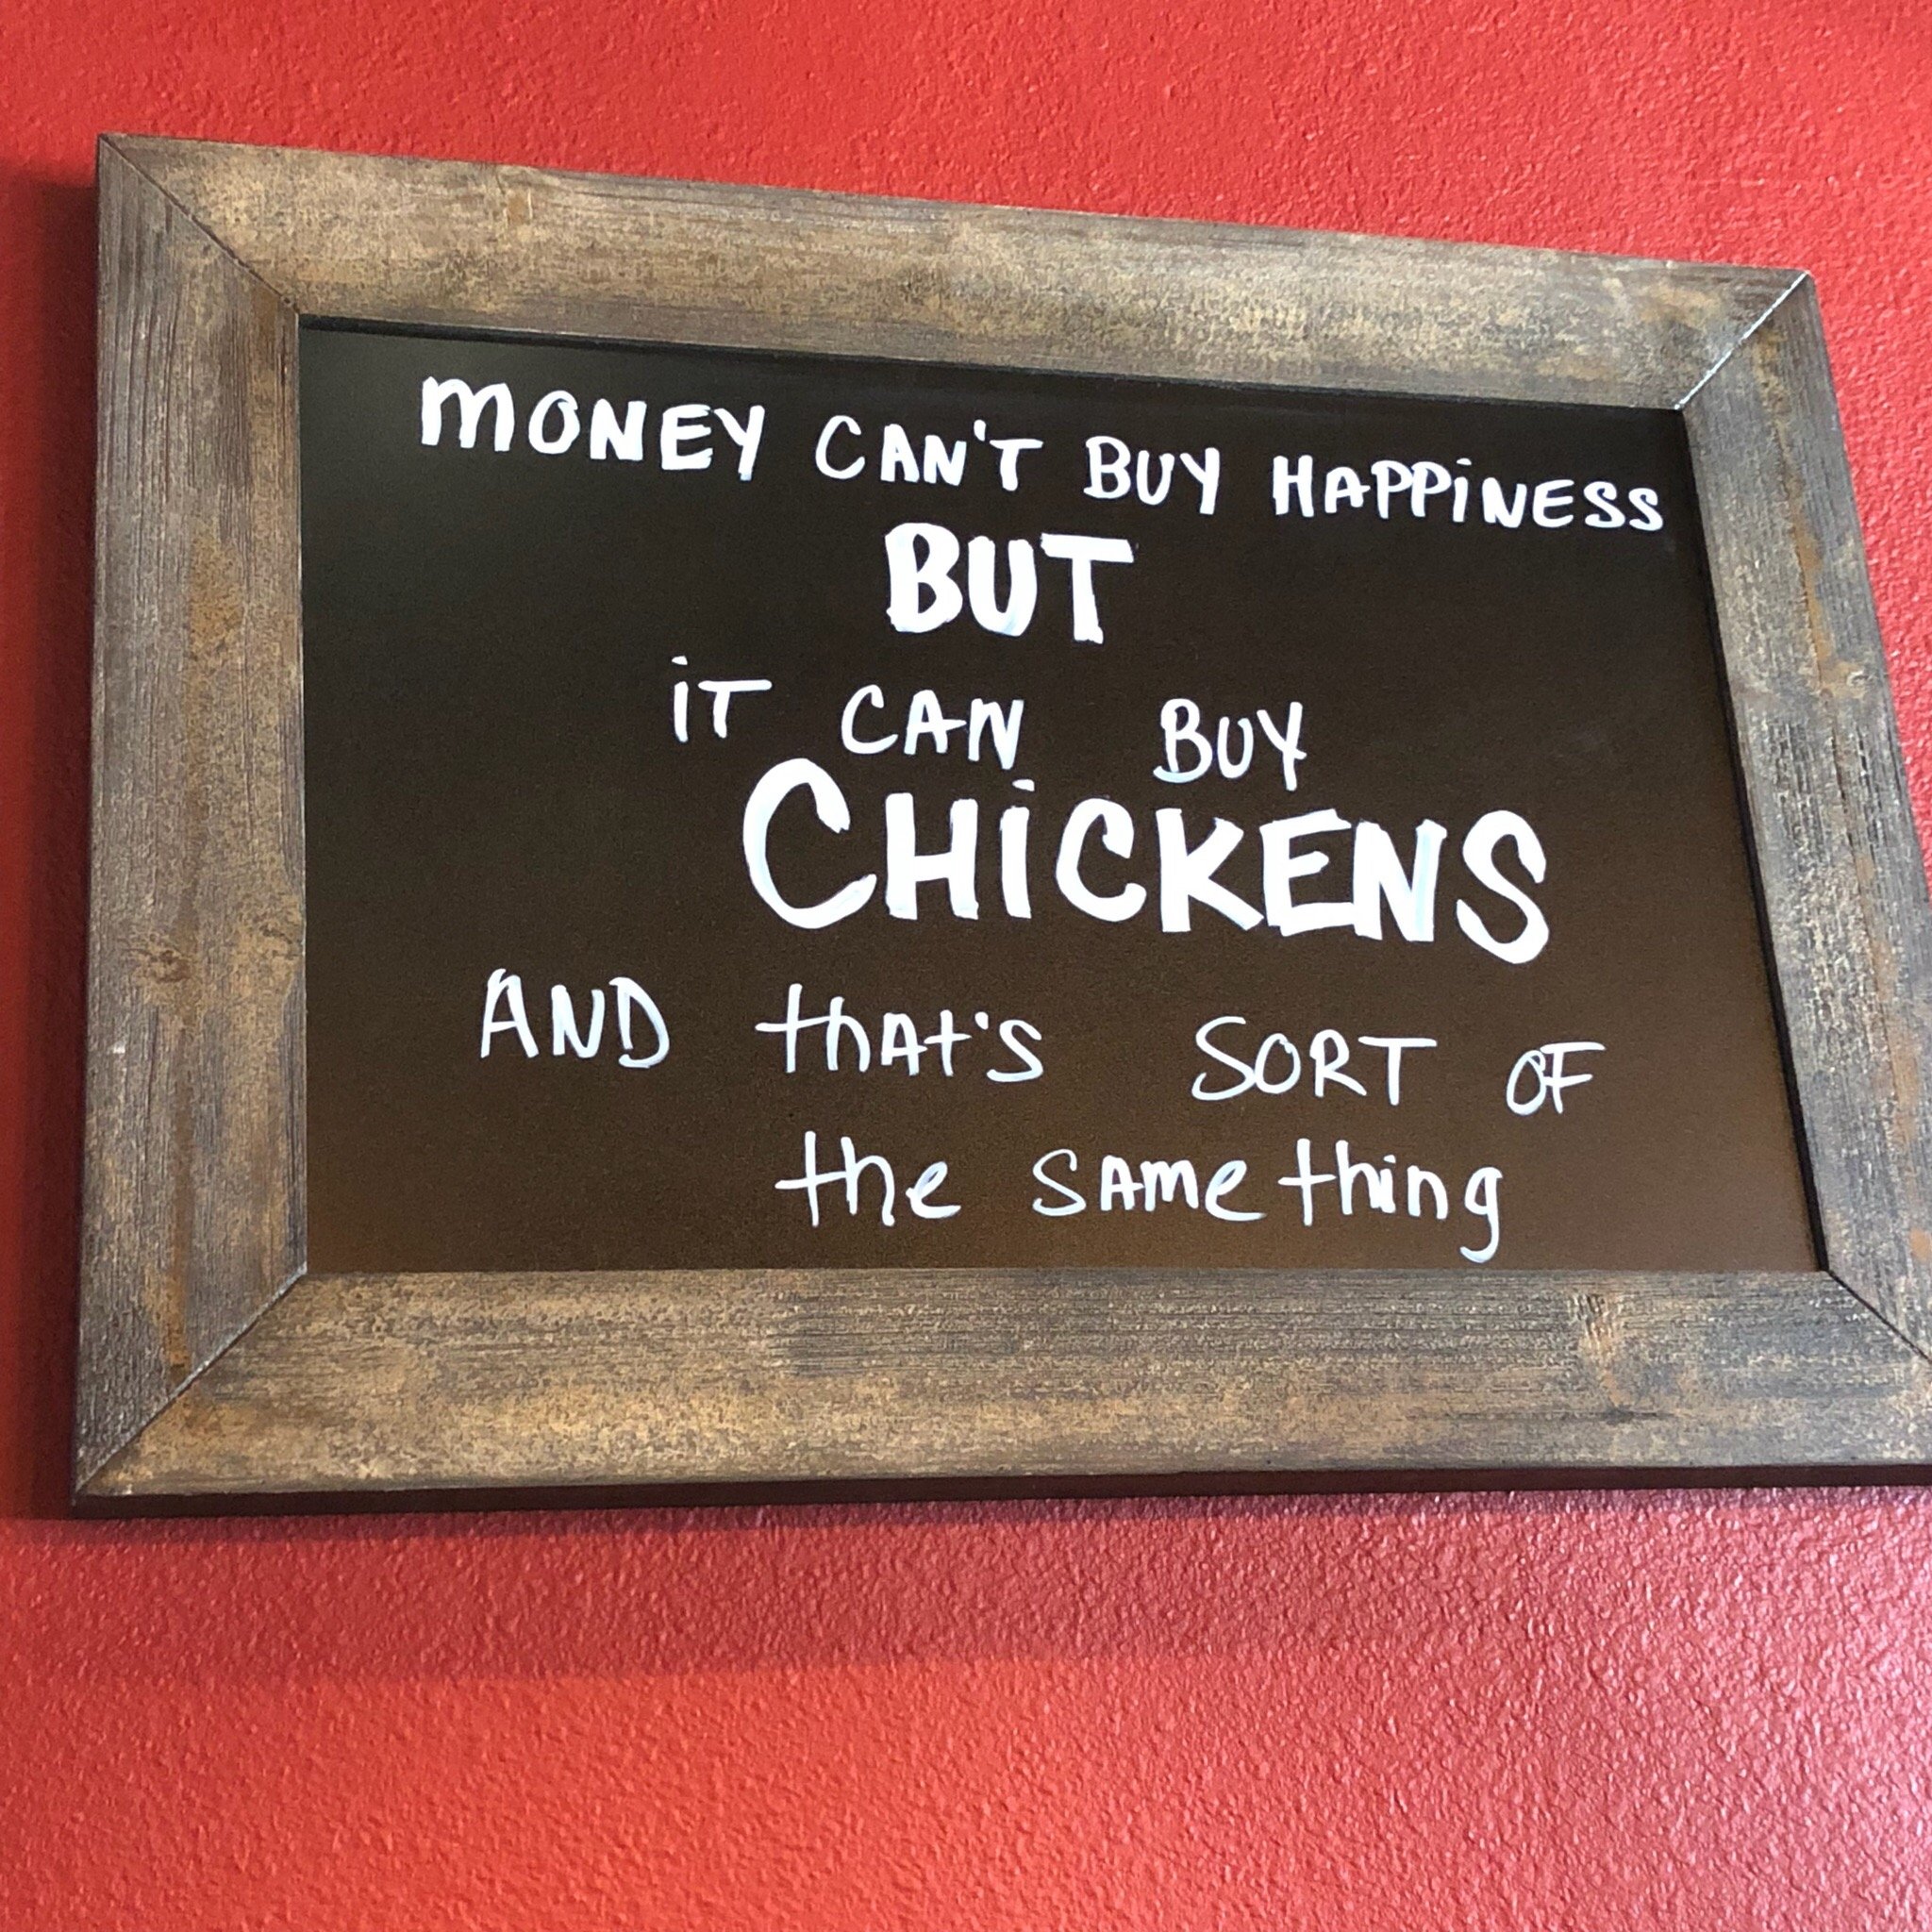 MONEY CAN'T BUY HAPPiNESS
BUT
iT CAN BUY
CHiCKENS
AND thAt'S SORT OF
the SAme thing